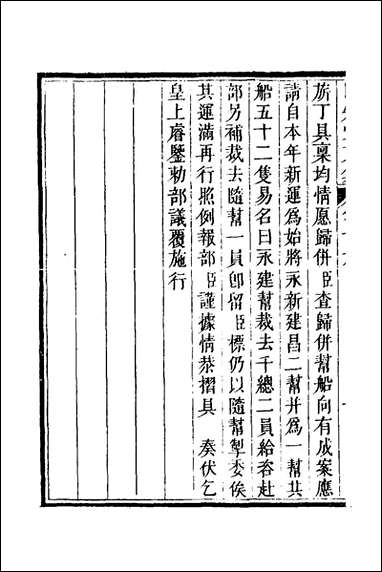 旂丁具稟均情愿歸併臣查歸併幫船向有成案應
請自本年新運爲始將永新建昌二幫并爲一幫共
船五十二隻易名曰永建幫裁去千總二員給咨赴
部另補裁去隨幫一員卽留臣標仍以隨幫掣委俟
其運滿再行照例報部臣謹據情恭摺具　奏伏乞
皇上睿鑒勅部議覆施行